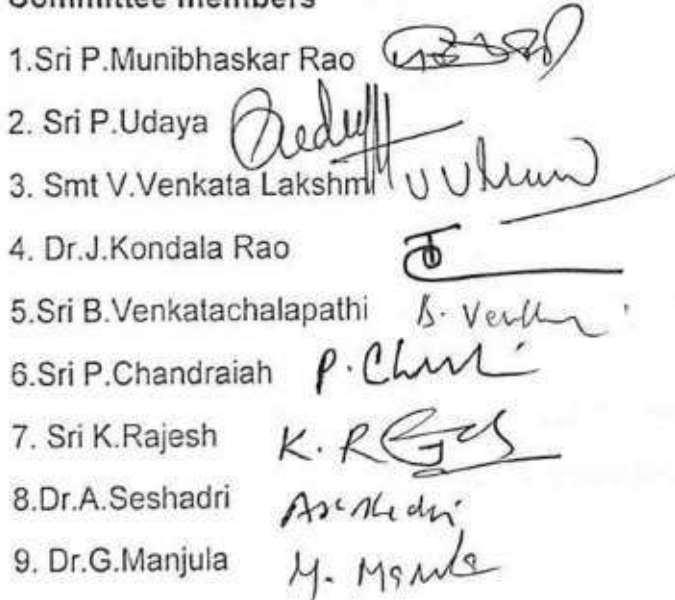 Committee members
1.Sri P.Munibhaskar Rao
2. Sri P.Udaya
3. Smt V.Venkata Lakshmi
4. Dr.J.Kondala Rao
5.Sri B.Venkatachalapathi B.
6.Sri P.Chandraiah P.
7. Sri K.Rajesh K. R
8.Dr.A.Seshadri
9. Dr.G.Manjula